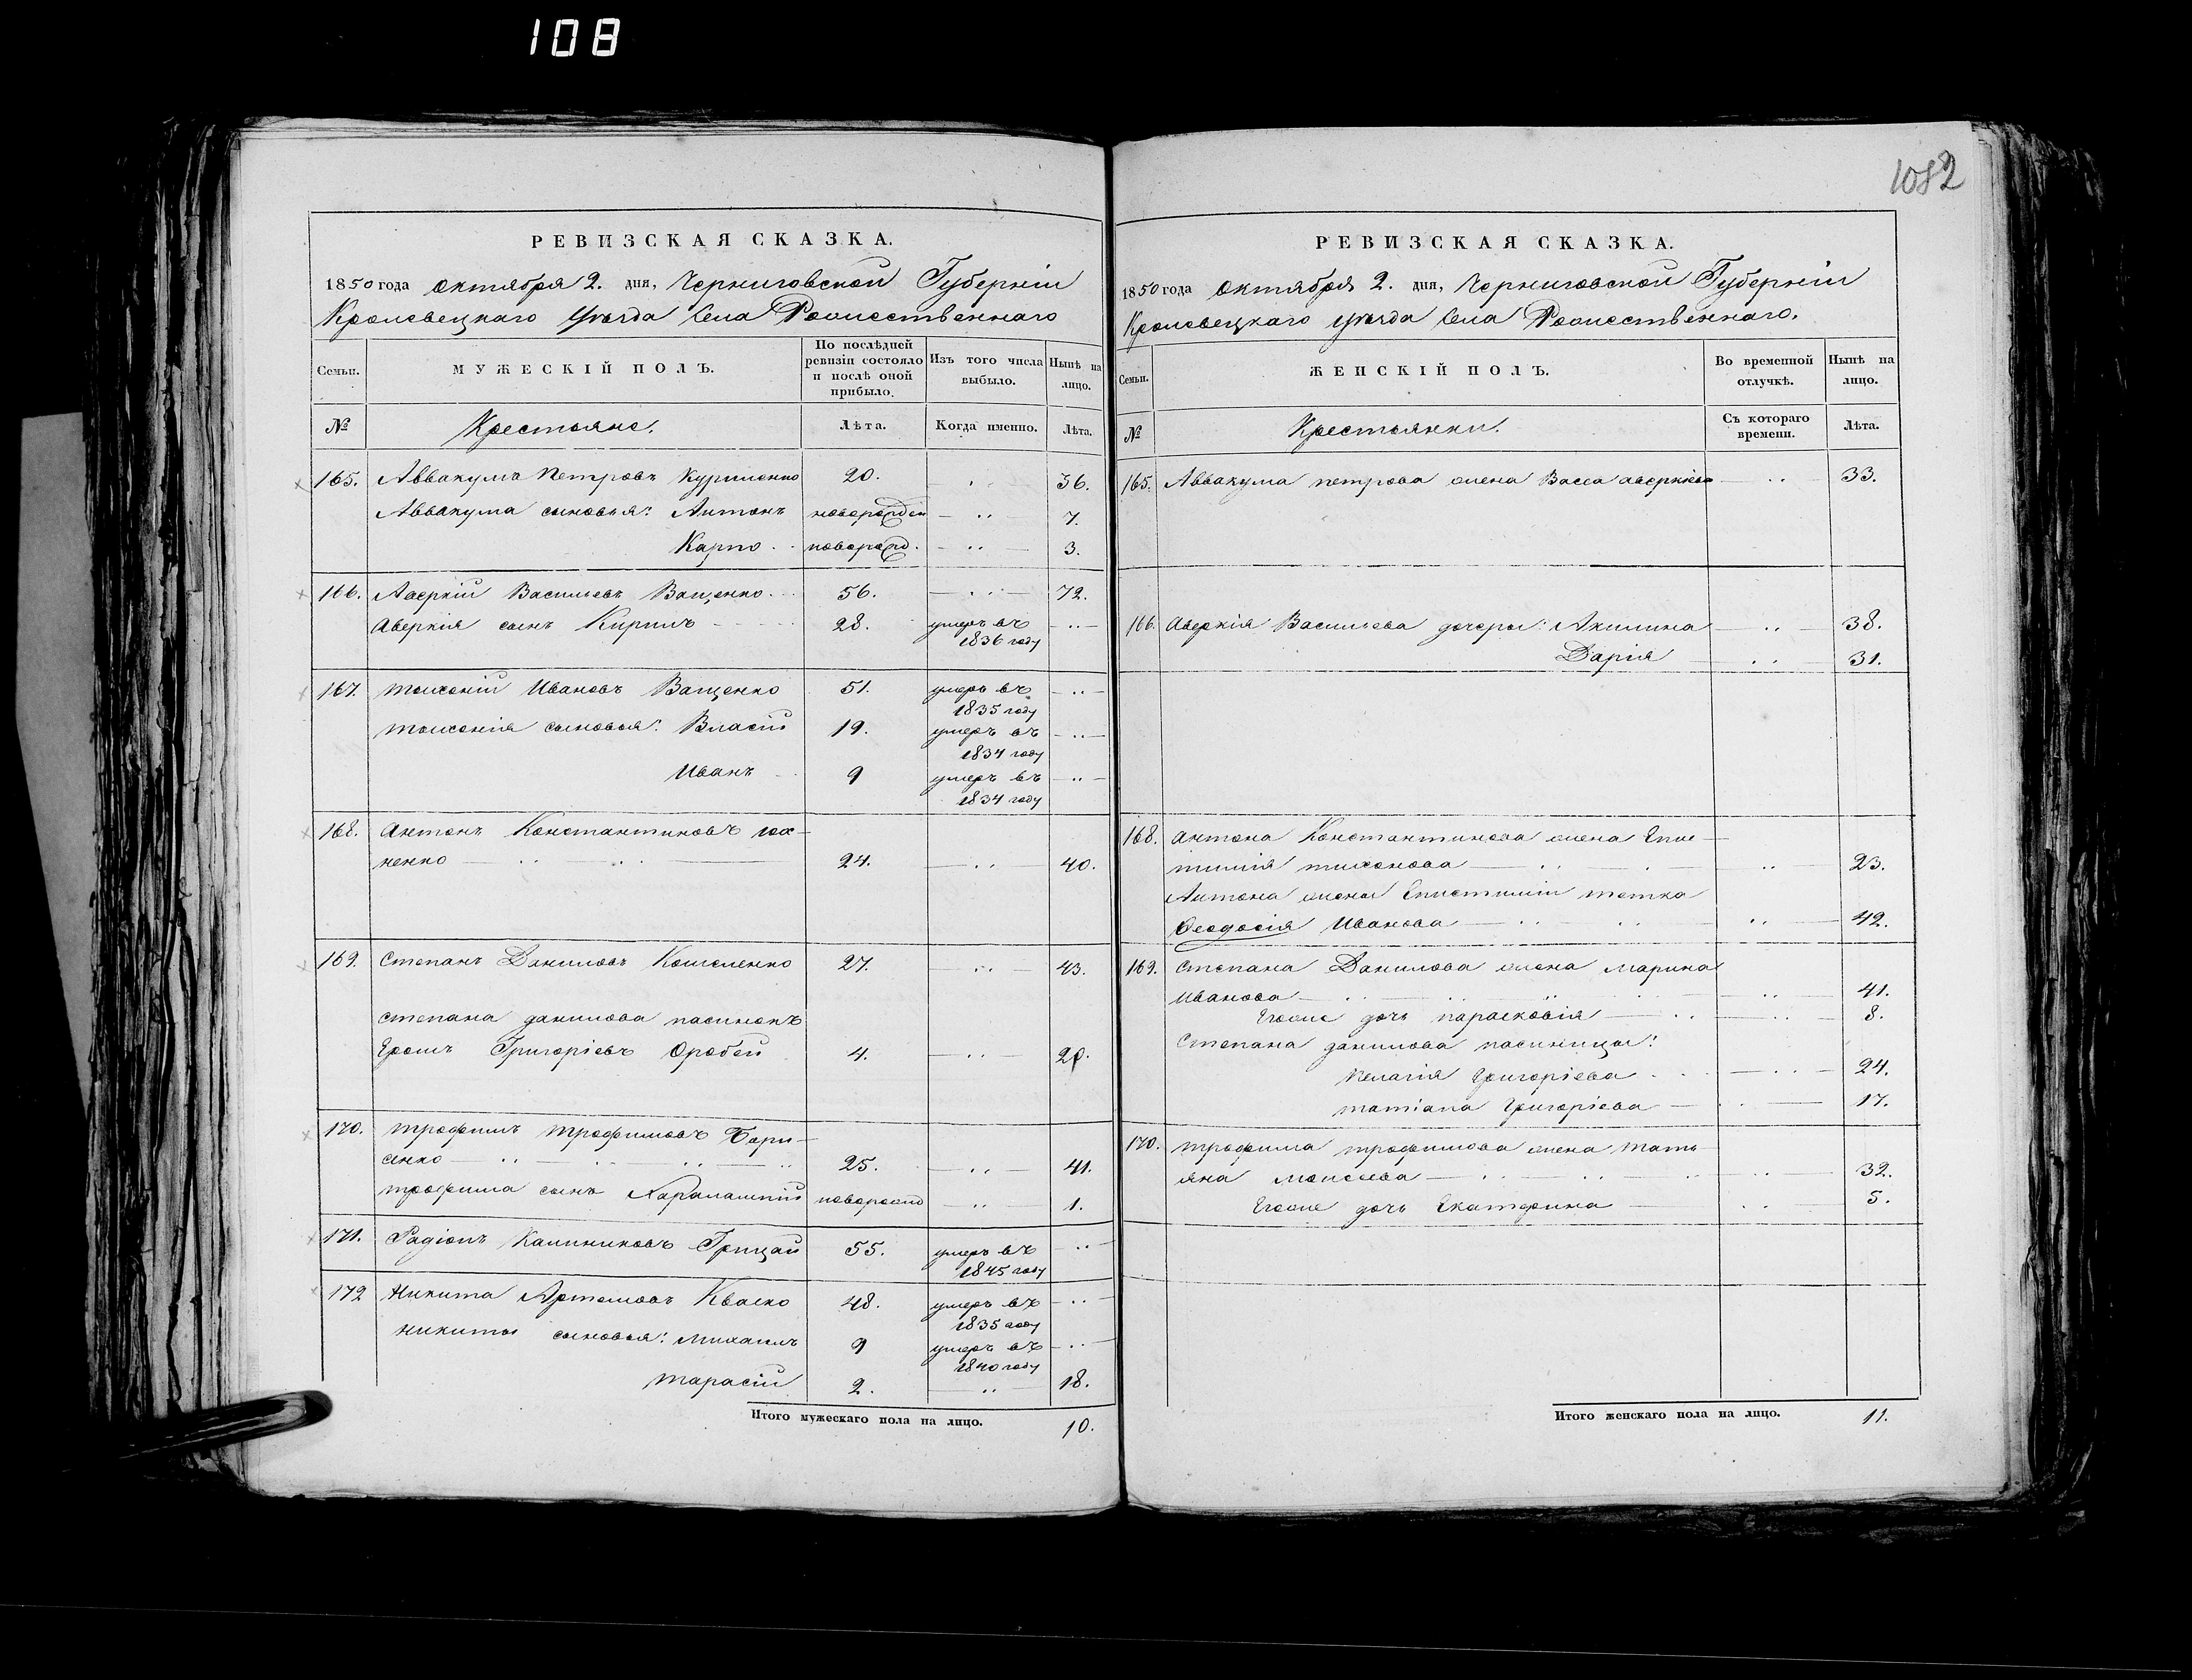 108
1082
РЕВИЗСКАЯ СКАЗКА.
1850 года Октября 2. дня, Черниговской Губерніи
Кролевецкаго Уѣзда Села Рожественнаго
Семьи. МУЖЕСКІЙ ПОЛЪ. По послѣдней ревизіи состояло и послѣ оной прибыло. Изъ того числа выбыло. Нынѣ на лицо.
№ Крестьяне. Лѣта. Когда именно. Лѣта.
165. Аввакумъ Петровъ Куриленко 20. 36.
Аввакума сыновья: Антонъ новорожден 7.
Карпо новорожд. 3.
166. Аверкій Васильевъ Ващенко 56. 72.
Аверкія сынъ Кирилъ 28. умеръ въ 1836 году
167. Тихоній Ивановъ Ващенко 51. умеръ въ 1835 году
Тихонія сыновья: Власій 19. умеръ въ 1834 году
Иванъ 9 умеръ въ 1834 году
168. Антонъ Константиновъ
ненко 24. 40.
169. Степанъ Даниловъ Кошеленко 27. 43.
Степана Данилова пасинокъ
Григоріевъ Оробей 4. 20.
170. Трофимъ Трофимовъ Бори-
сенко 25. 41.
Трофима сынъ Харалампій новорожд 1.
171. Радіонъ Калиниковъ Грицай 55. умеръ въ 1845 году
172 Никита Артемовъ Кваско 48. умеръ въ 1835 году
Никиты сыновья: Михаилъ 9 умеръ въ 1840 году
Тарасій 2. 18.
Итого мужескаго пола на лицо. 10.
РЕВИЗСКАЯ СКАЗКА.
1850 года Октября 2. дня, Черниговской Губерніи
Кролевецкаго Уѣзда Села Рожественнаго.
Семьи. ЖЕНСКІЙ ПОЛЪ. Во временной отлучкѣ. Нынѣ на лицо.
№ Крестьянки. Съ котораго времени. Лѣта.
165. Аввакума Петрова жена Васса Аверкіева 33.
166. Аверкія Васильева дочери: Акилина 38.
Дарія 31.
168. Антона Константинова жена Епис-
тимія Тихонова 23.
Антона жены Епистиміи тетка
Феодосія Иванова 42.
169. Степана Данилова жена Марина
Иванова 41.
Егоже дочь Парасковія 8.
Степана Данилова пасиницы:
Пелагія Григоріева 24.
Татіана Григоріева 17.
170. Трофима Трофимова жена Тать
яна Моисеева 32.
Егоже дочь Екатерина 5.
Итого женскаго пола на лицо. 11.